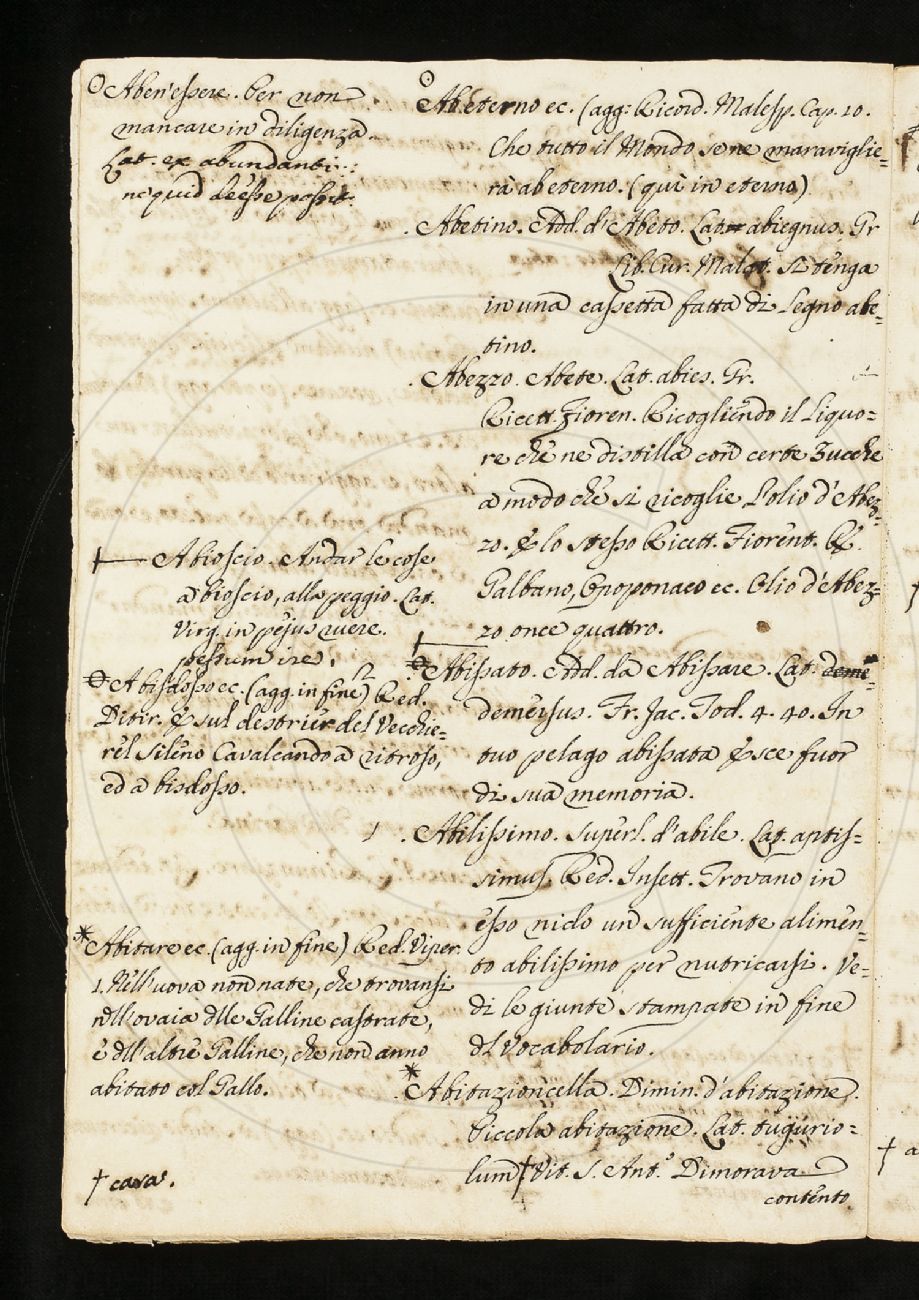 Aben'essere. Per non
mancare in diligenza.
Lat. ex abundanti:
ne quid deesse possit.
Abioscio. Andar le cose
a bioscio, alla peggio. Lat.
Virg. in pejus ruere.
pessum ire.
A bisdosso ec. (agg. in fine) Red.
Ditir. E sul destrier del Vecchie=
rel Sileno Cavalcando a ritroso,
ed a bisdosso.
Abitare ec. (agg. in fine) Red. Viper.
1. Nell'uova non nate, che trovansi
nell'ovaia dlle Galline castrate,
e dll'altre Galline, che non anno
abitato col Gallo.
† cara.
Ab eterno ec. (agg: Ricord. Malesp. Cap. 10.
Che tutto il Mondo se ne maraviglie=
rà ab eterno. (qui in eterno)
Abetino. Add. d'Abeto. Lat. abiegnus. Gr
Lib. Cur. Malat. Si tenga
in una cassetta fatta di Legno abe=
tino.
Abezzo. Abete. Lat. abies. Gr.
Ricett. Fioren. Ricogliendo il Liquo=
re che ne distilla con certe Zucche
a modo che si ricoglie l'olio d'Abez=
zo. E lo stesso Ricett. Fiorent. R.
Galbano, Opoponaco ec. Olio d'Abez=
zo once quattro.
Abissato. Add. da Abissare. Lat. deme=
demersus. Fr. Jac. Tod. 4. 40. In
tuo pelago abissata Esce fuor
di sua memoria.
Abilissimo. Superl. d'abile. Lat. aptis=
simus Red. Insett. Trovano in
esso nido un sufficiente alimen=
to abilissimo per nutricarsi. Ve=
di le giunte stampate in fine
dl Vocabolario.
Abitazioncella. Dimin. d'abitazione.
Piccola abitazione. Lat. tugurio=
lum † Vit. S. Ant.° Dimorava
contento